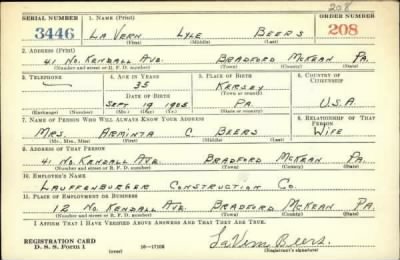 208
SERIAL NUMBER 1. NAME (Print) ORDER NUMBER
3446 LA VERN LYLE BEERS 208
(First) (Middle) (Last)
2. ADDRESS (Print)
41 NO. KENDALL AVE. BRADFORD MCKEAN PA.
(Number and street or R. F. D. number) (Town) (County) (State)
3. TELEPHONE 4. AGE IN YEARS 5. PLACE OF BIRTH 6. COUNTRY OF CITIZENSHIP
35 KERSEY
(Town or county)
DATE OF BIRTH
SEPT 19 1905 PA U.S.A
(Exchange) (Number) (Mo.) (Day) (Yr.) (State or country)
7. NAME OF PERSON WHO WILL ALWAYS KNOW YOUR ADDRESS 8. RELATIONSHIP OF THAT PERSON
MRS. ARMINTA C BEERS WIFE
(Mr., Mrs., Miss) (First) (Middle) (Last)
9. ADDRESS OF THAT PERSON
41 NO. KENDALL AVE. BRADFORD MCKEAN PA.
(Number and street or R. F. D. number) (Town) (County) (State)
10. EMPLOYER'S NAME
LAUFFENBURGER CONSTRUCTION CO.
11. PLACE OF EMPLOYMENT OR BUSINESS
12 NO. KENDALL AVE. BRADFORD MCKEAN PA.
(Number and street or R. F. D. number) (Town) (County) (State)
I AFFIRM THAT I HAVE VERIFIED ABOVE ANSWERS AND THAT THEY ARE TRUE.
REGISTRATION CARD
D. S. S. Form 1 (over) 16—17105 LaVern Beers.
(Registrant's signature)